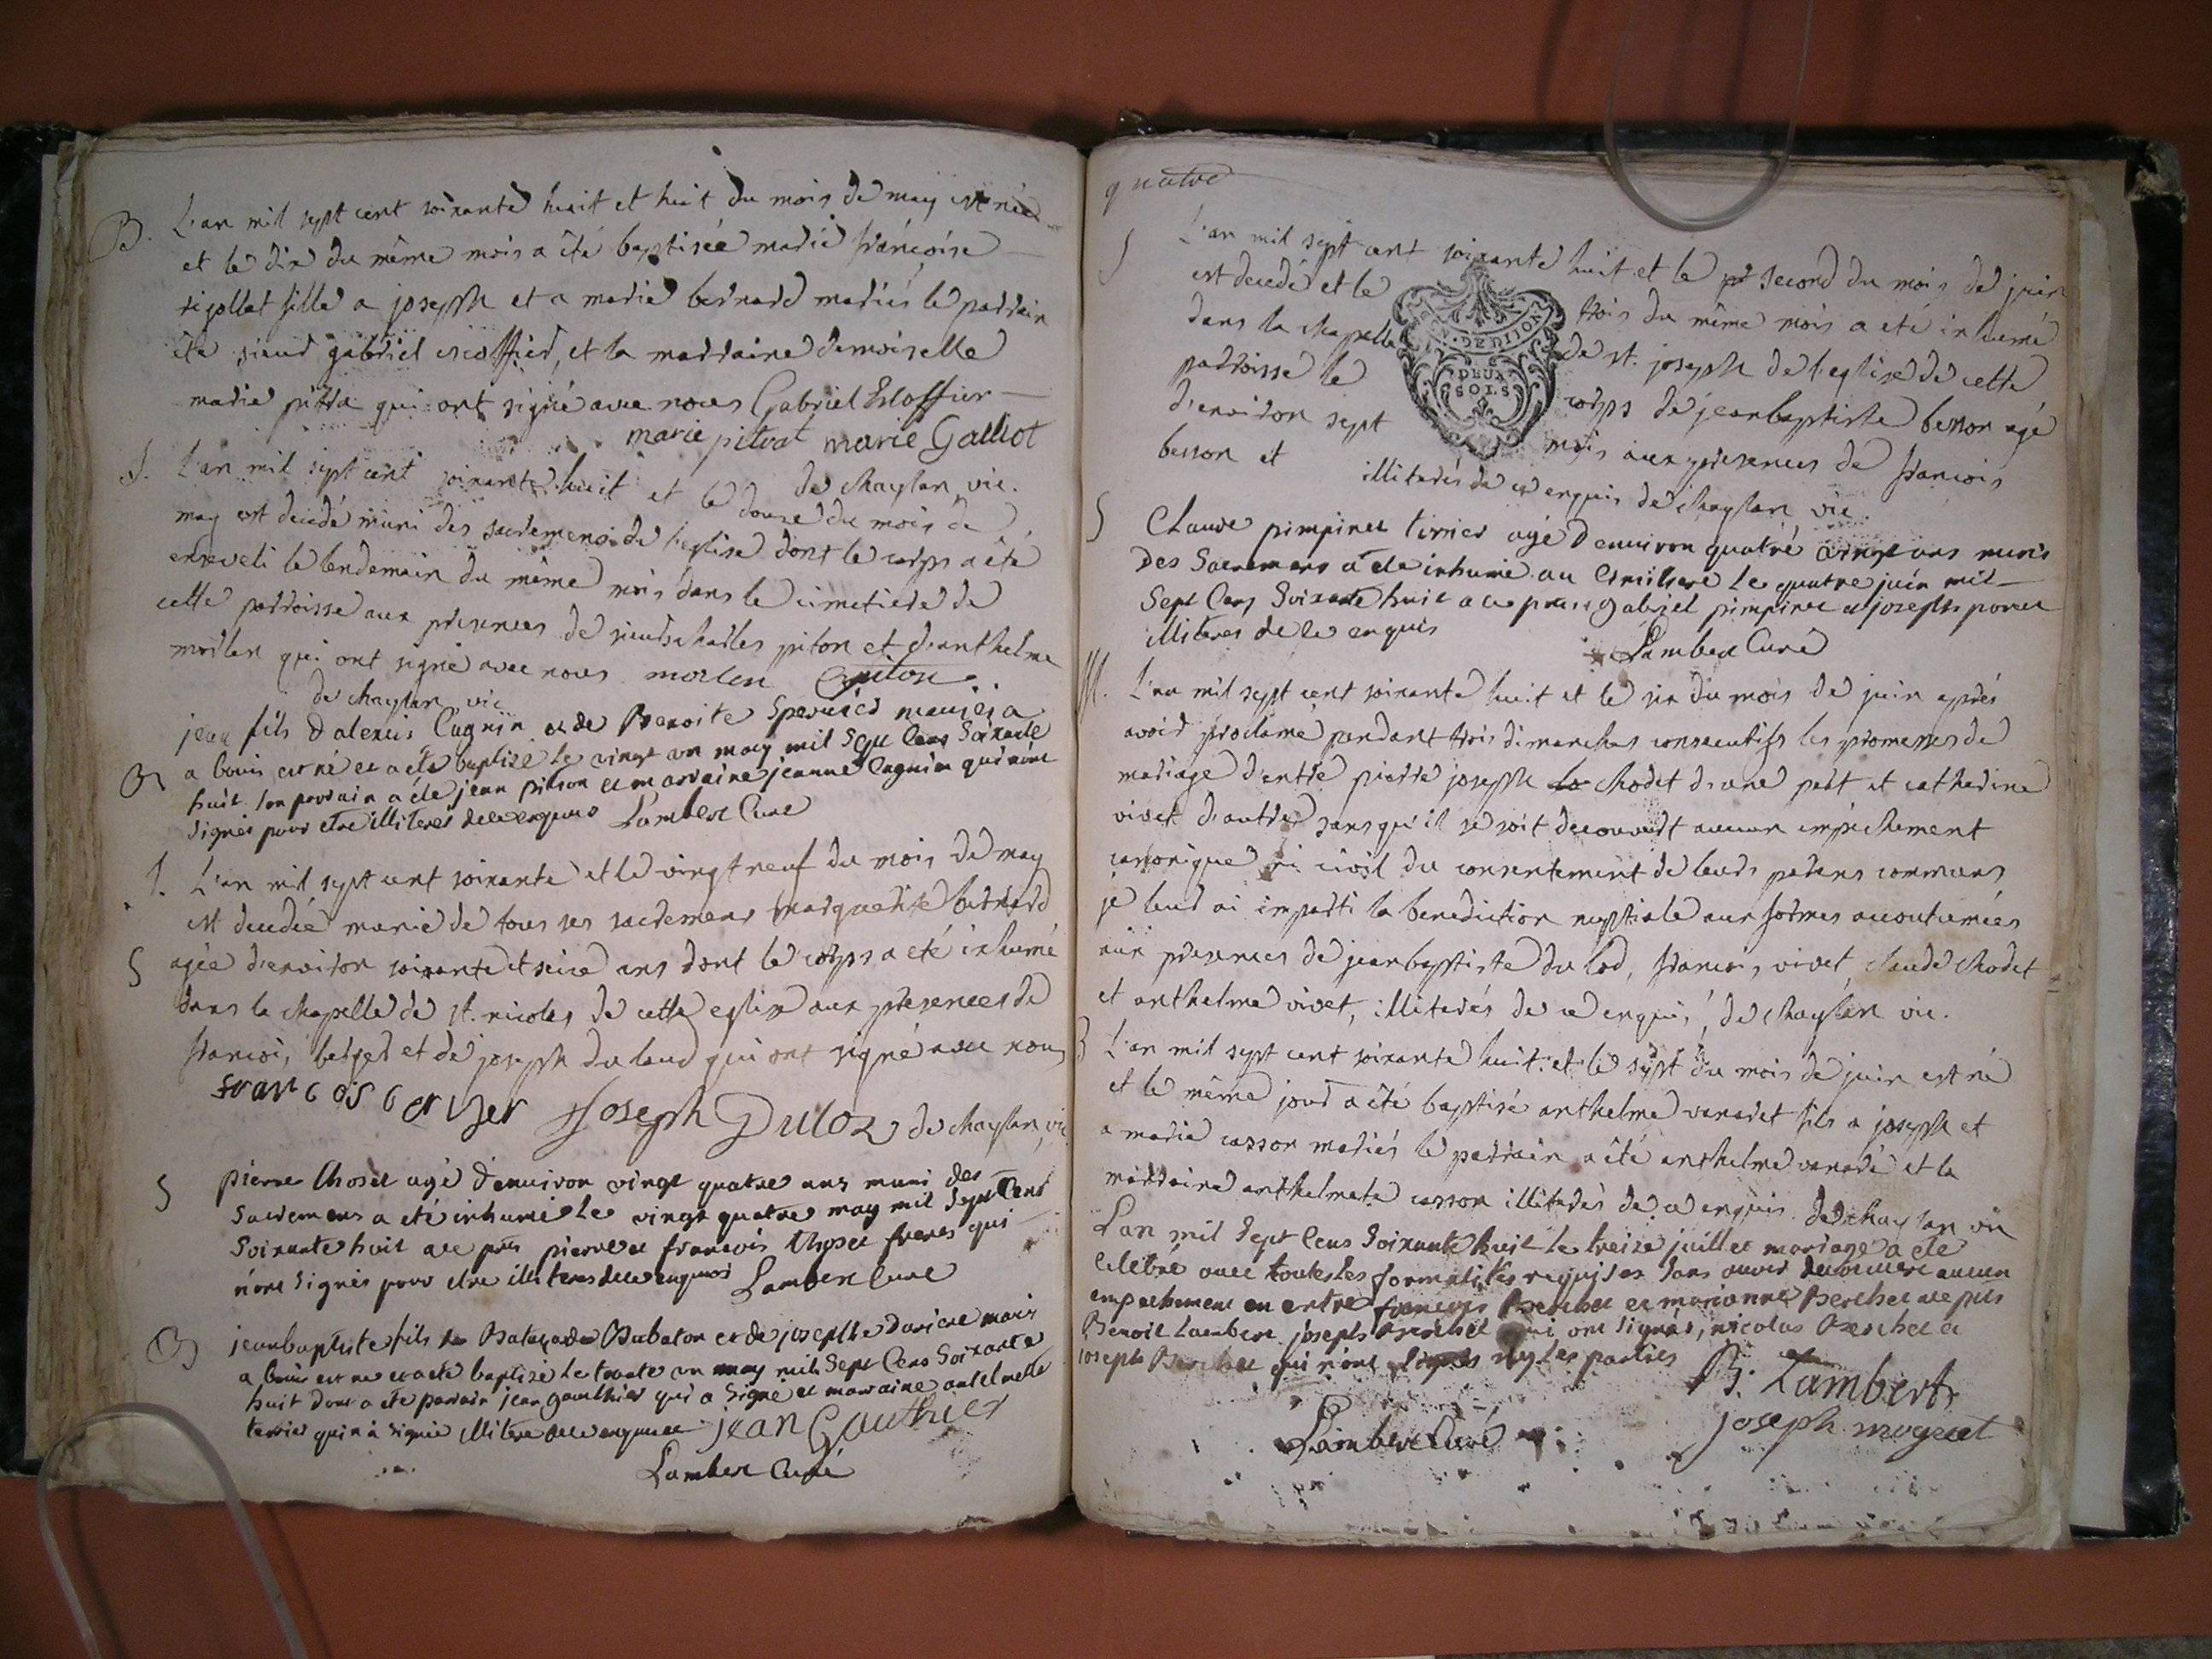 B. L'an mil sept cent soixante huit et huit du mois de may est née
et le dix du même mois a été baptisée marie françoise
rijollet fille a joseph et a marie bernard mariés le parrain
été sieur gabriel escoffier, et la marraine demoiselle
marie pitra qui ont signé avec nous Gabriel Escoffier
marie pitrat marie Galliot
de chaylan vic.
S. L'an mil sept cent soixante huit et le douze du mois de
may est decedé muni des sacremens de l'eglise dont le corps a été
enseveli le lendemain du même mois dans le cimetiere de
cette parroisse aux presences de sieurs charles piton et d'anthelme
morlen qui ont signé avec nous morlen piton
de chaylan vic
jean fils d'alexis Cugnin et de Benoite mariés a
B a bouis est né et a été baptizé le vingt un may mil sept cens soixante
huit son parrain a été jean pitton et marraine jeanne Cugnin qui n'ont
signés pour etre illiteres de ce enquis Lambert Curé
S. L'an mil sept cent soixante et le vingt neuf du mois de may
est decedée munie de tous ses sacremens marguerite bernard
S agée d'environ soixante et seize ans dont le corps a été inhumé
dans la chapelle de st. nicolas de cette eglise aux presences de
francois berger et de joseph du laud qui ont signé avec nous
francois berger Joseph Duloz de chaylan vic
S pierre Chosel agé d'environ vingt quatre ans muni des
Sacremens a eté inhumé le vingt quatre may mil Sept Cens
Soixante huit aux pres pierre et francois freres qui
n'ont signés pour etre illiteres de ce enquis Lambert Curé
B jeanbaptiste fils Babaton et de josephte mariés
a bouis est né et a été baptisé le trente un may mil Sept Cens Soixante
huit dont a été parrain jean gaulthier qui a Signé et marraine antelmette
terrier qui n'a Signé illitere de ce enquise jean Gauthier
Lambert Curé
quatre
S L'an mil sept cent soixante huit et le second du mois de juin
est decedé et le trois du même mois a été inhumé
dans la chapelle de st. joseph de l'eglise de cette
parroisse le corps de jeanbaptiste besson agé
d'environ sept mois aux presences de francois
besson et illiterés de ce enquis de chaylan vic.
DE DIJON
DEUX
SOLS
S Claude pimpinet tirrier agé d'environ quatre vingt ans munis
Des Sacremens a été inhumé au Cimitiere le quatre juin mil
Sept Cens Soixante huit a ce pres gabriel pimpinet et joseph
illiteres de ce enquis Lambert Curé
M. L'an mil sept cent soixante huit et le six du mois de juin aprés
avoir proclamé pendant trois dimanches consecutifs les promesses de
mariage d'entre pierre joseph chodet d'une part et catherine
vivet d'autre sans qu'il se soit decouvert aucun empéchement
canonique ni civil du consentement de leurs parens communs
je leur ai imparti la benediction nuptiale aux formes accoutumées
aux presences de jeanbaptiste du lod, francois vivet, claude chodet
et anthelme vivet, illiterés de ce enquis, de chaylan vic.
B L'an mil sept cent soixante huit et le sept du mois de juin est né
et le même jour a été baptisé anthelme vanaret fils a joseph et
a marie casson mariés le parrain a été anthelme vanaré et la
marraine anthelmete casson illiterés de ce enquis de chaylan vic
L'an mil Sept Cens Soixante huit le treize juillet mariage a été
Celebré avec toutes les formalités requises Sans avoir decouvert aucun
empechement entre francois Berchet et marianne Berchet a ce pres
Benoit Lambert joseph qui ont Signés, nicolas Berchet et
joseph Berchet qui n'ont signés ny les parties
B. Lambert
Lambert Curé joseph moguet